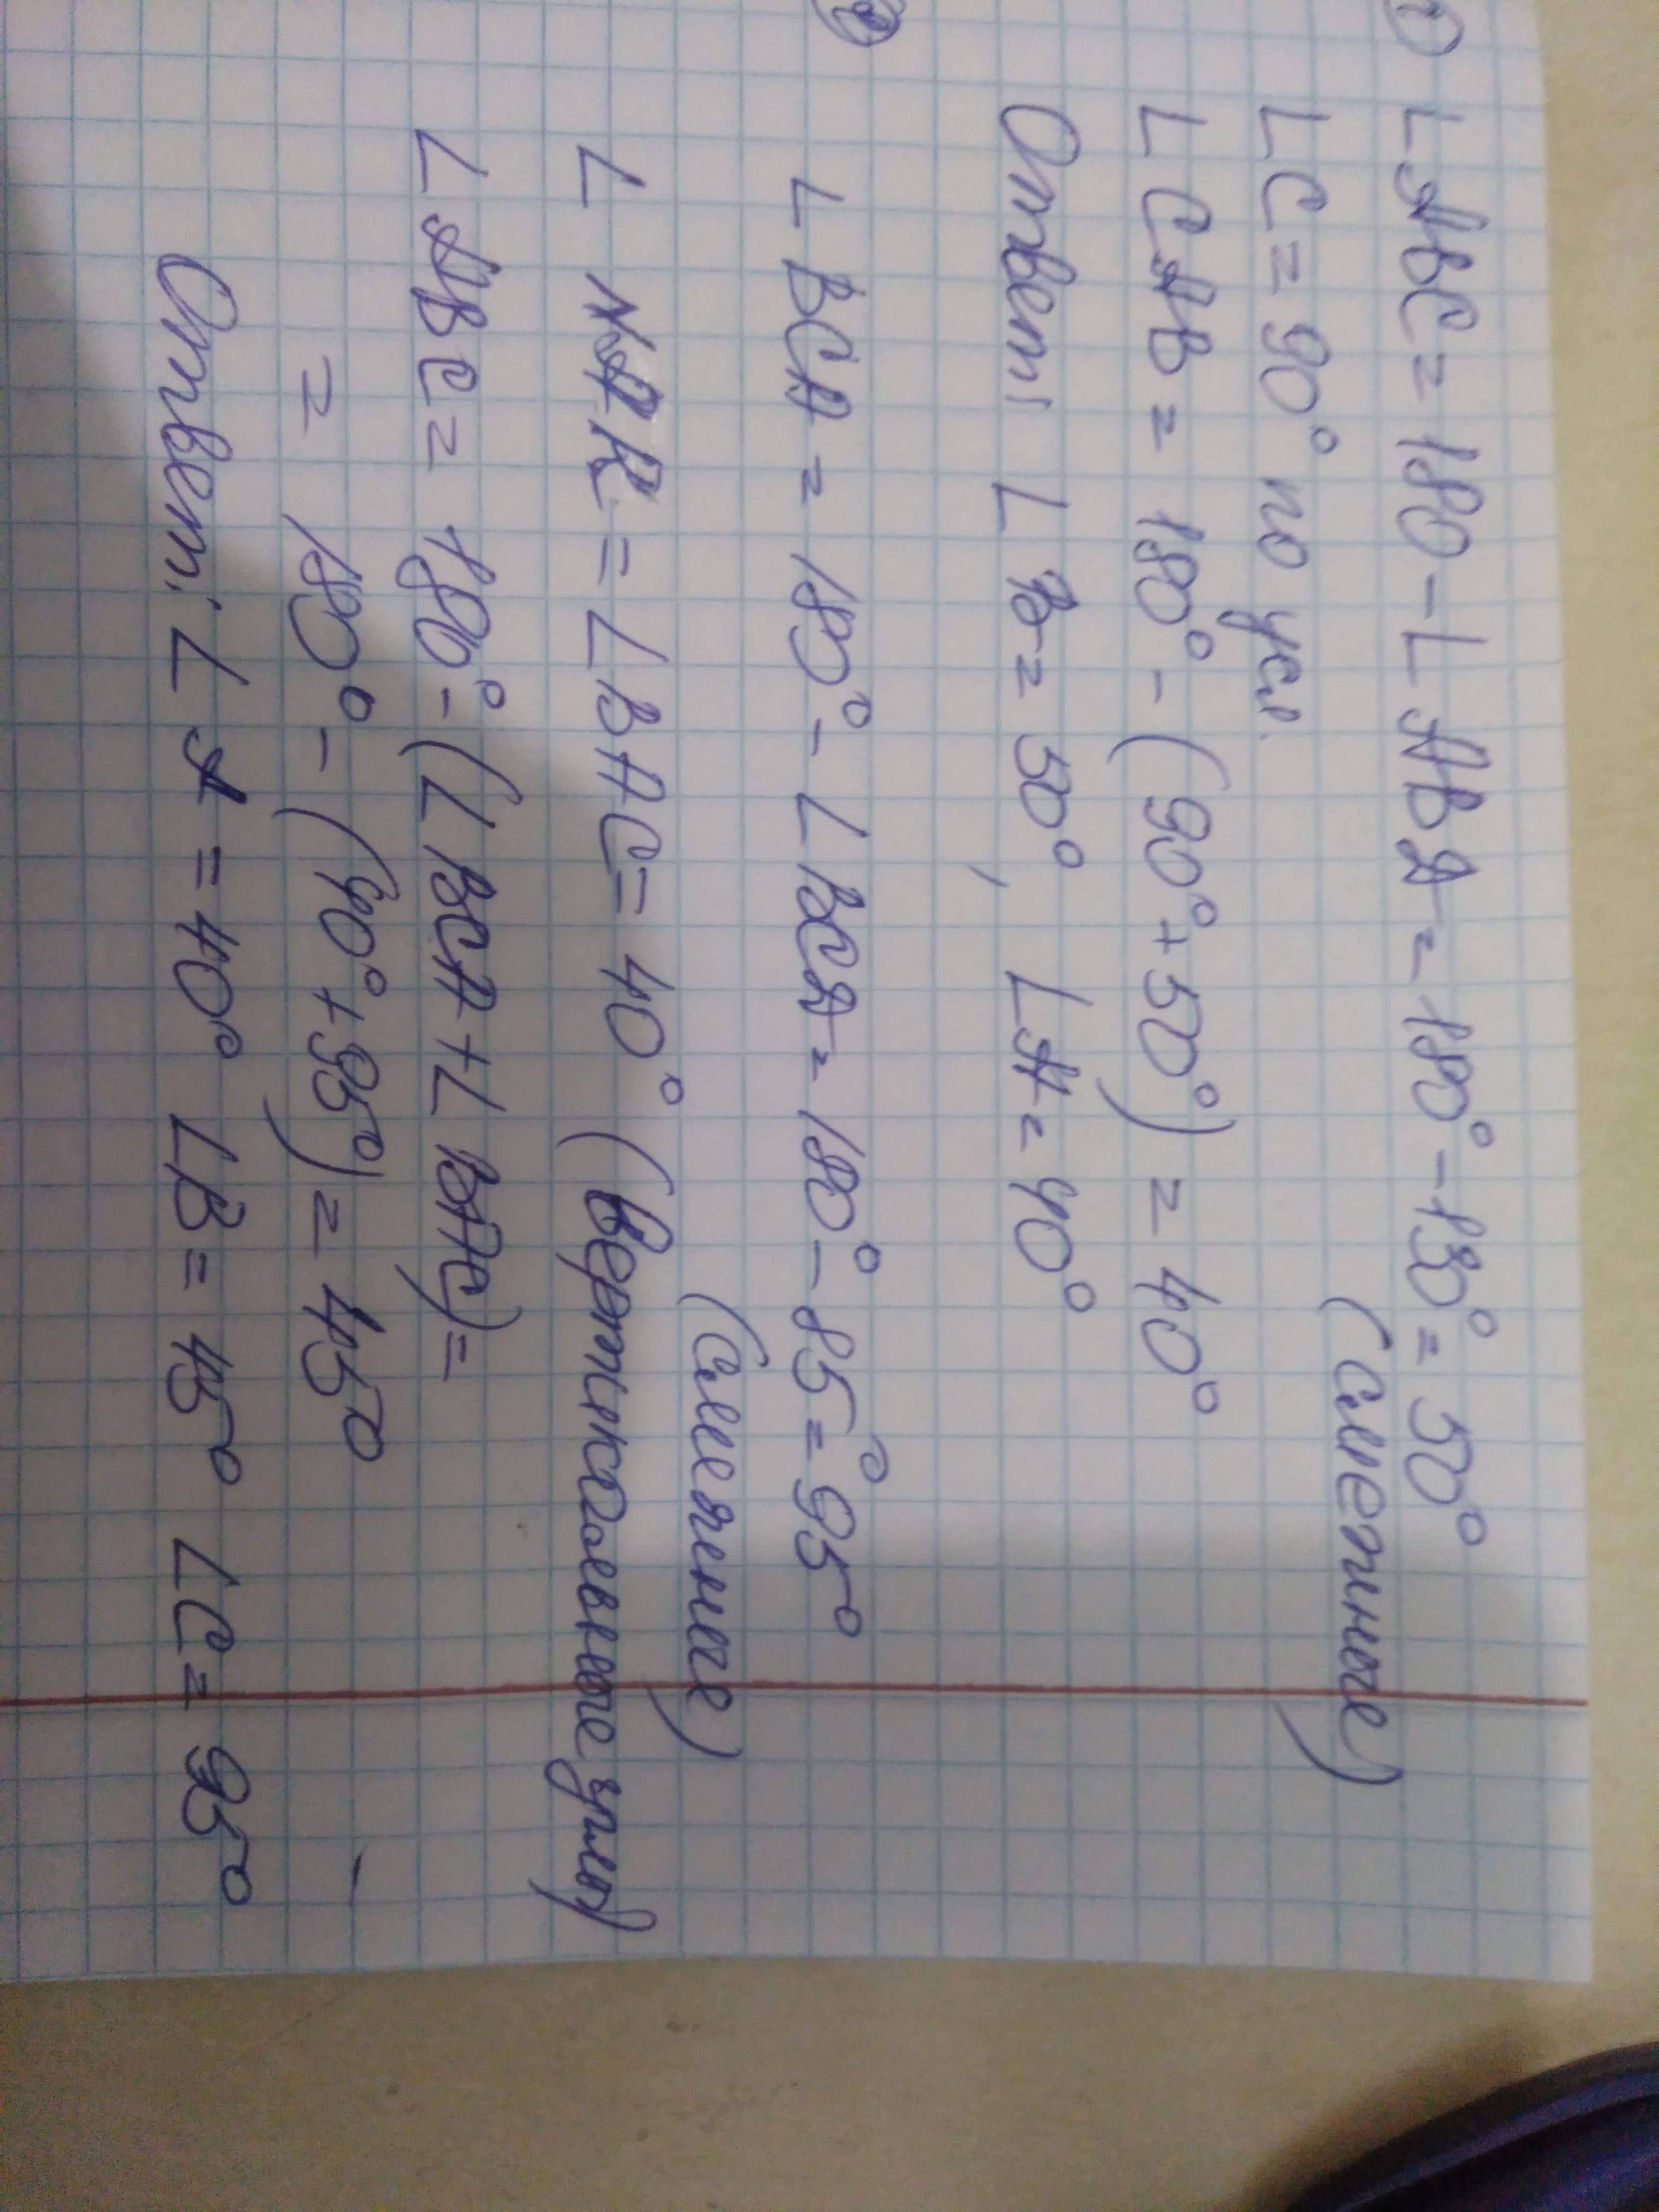 ① ∠ABC = 180 - ∠ABД = 180° - 130° = 50°
(смежные)
∠C = 90° по усл.
∠CAB = 180° - (90° + 50°) = 40°
Ответ: ∠B = 50°, ∠A = 40°
②
∠BCA = 180° - ∠BCД = 180° - 85° = 95°
(смежные)
∠NAK = ∠BAC = 40° (вертикальные углы)
∠ABC = 180° - (∠BCA + ∠BAC) =
= 180° - (40° + 95°) = 45°
Ответ: ∠A = 40° ∠B = 45° ∠C = 95°